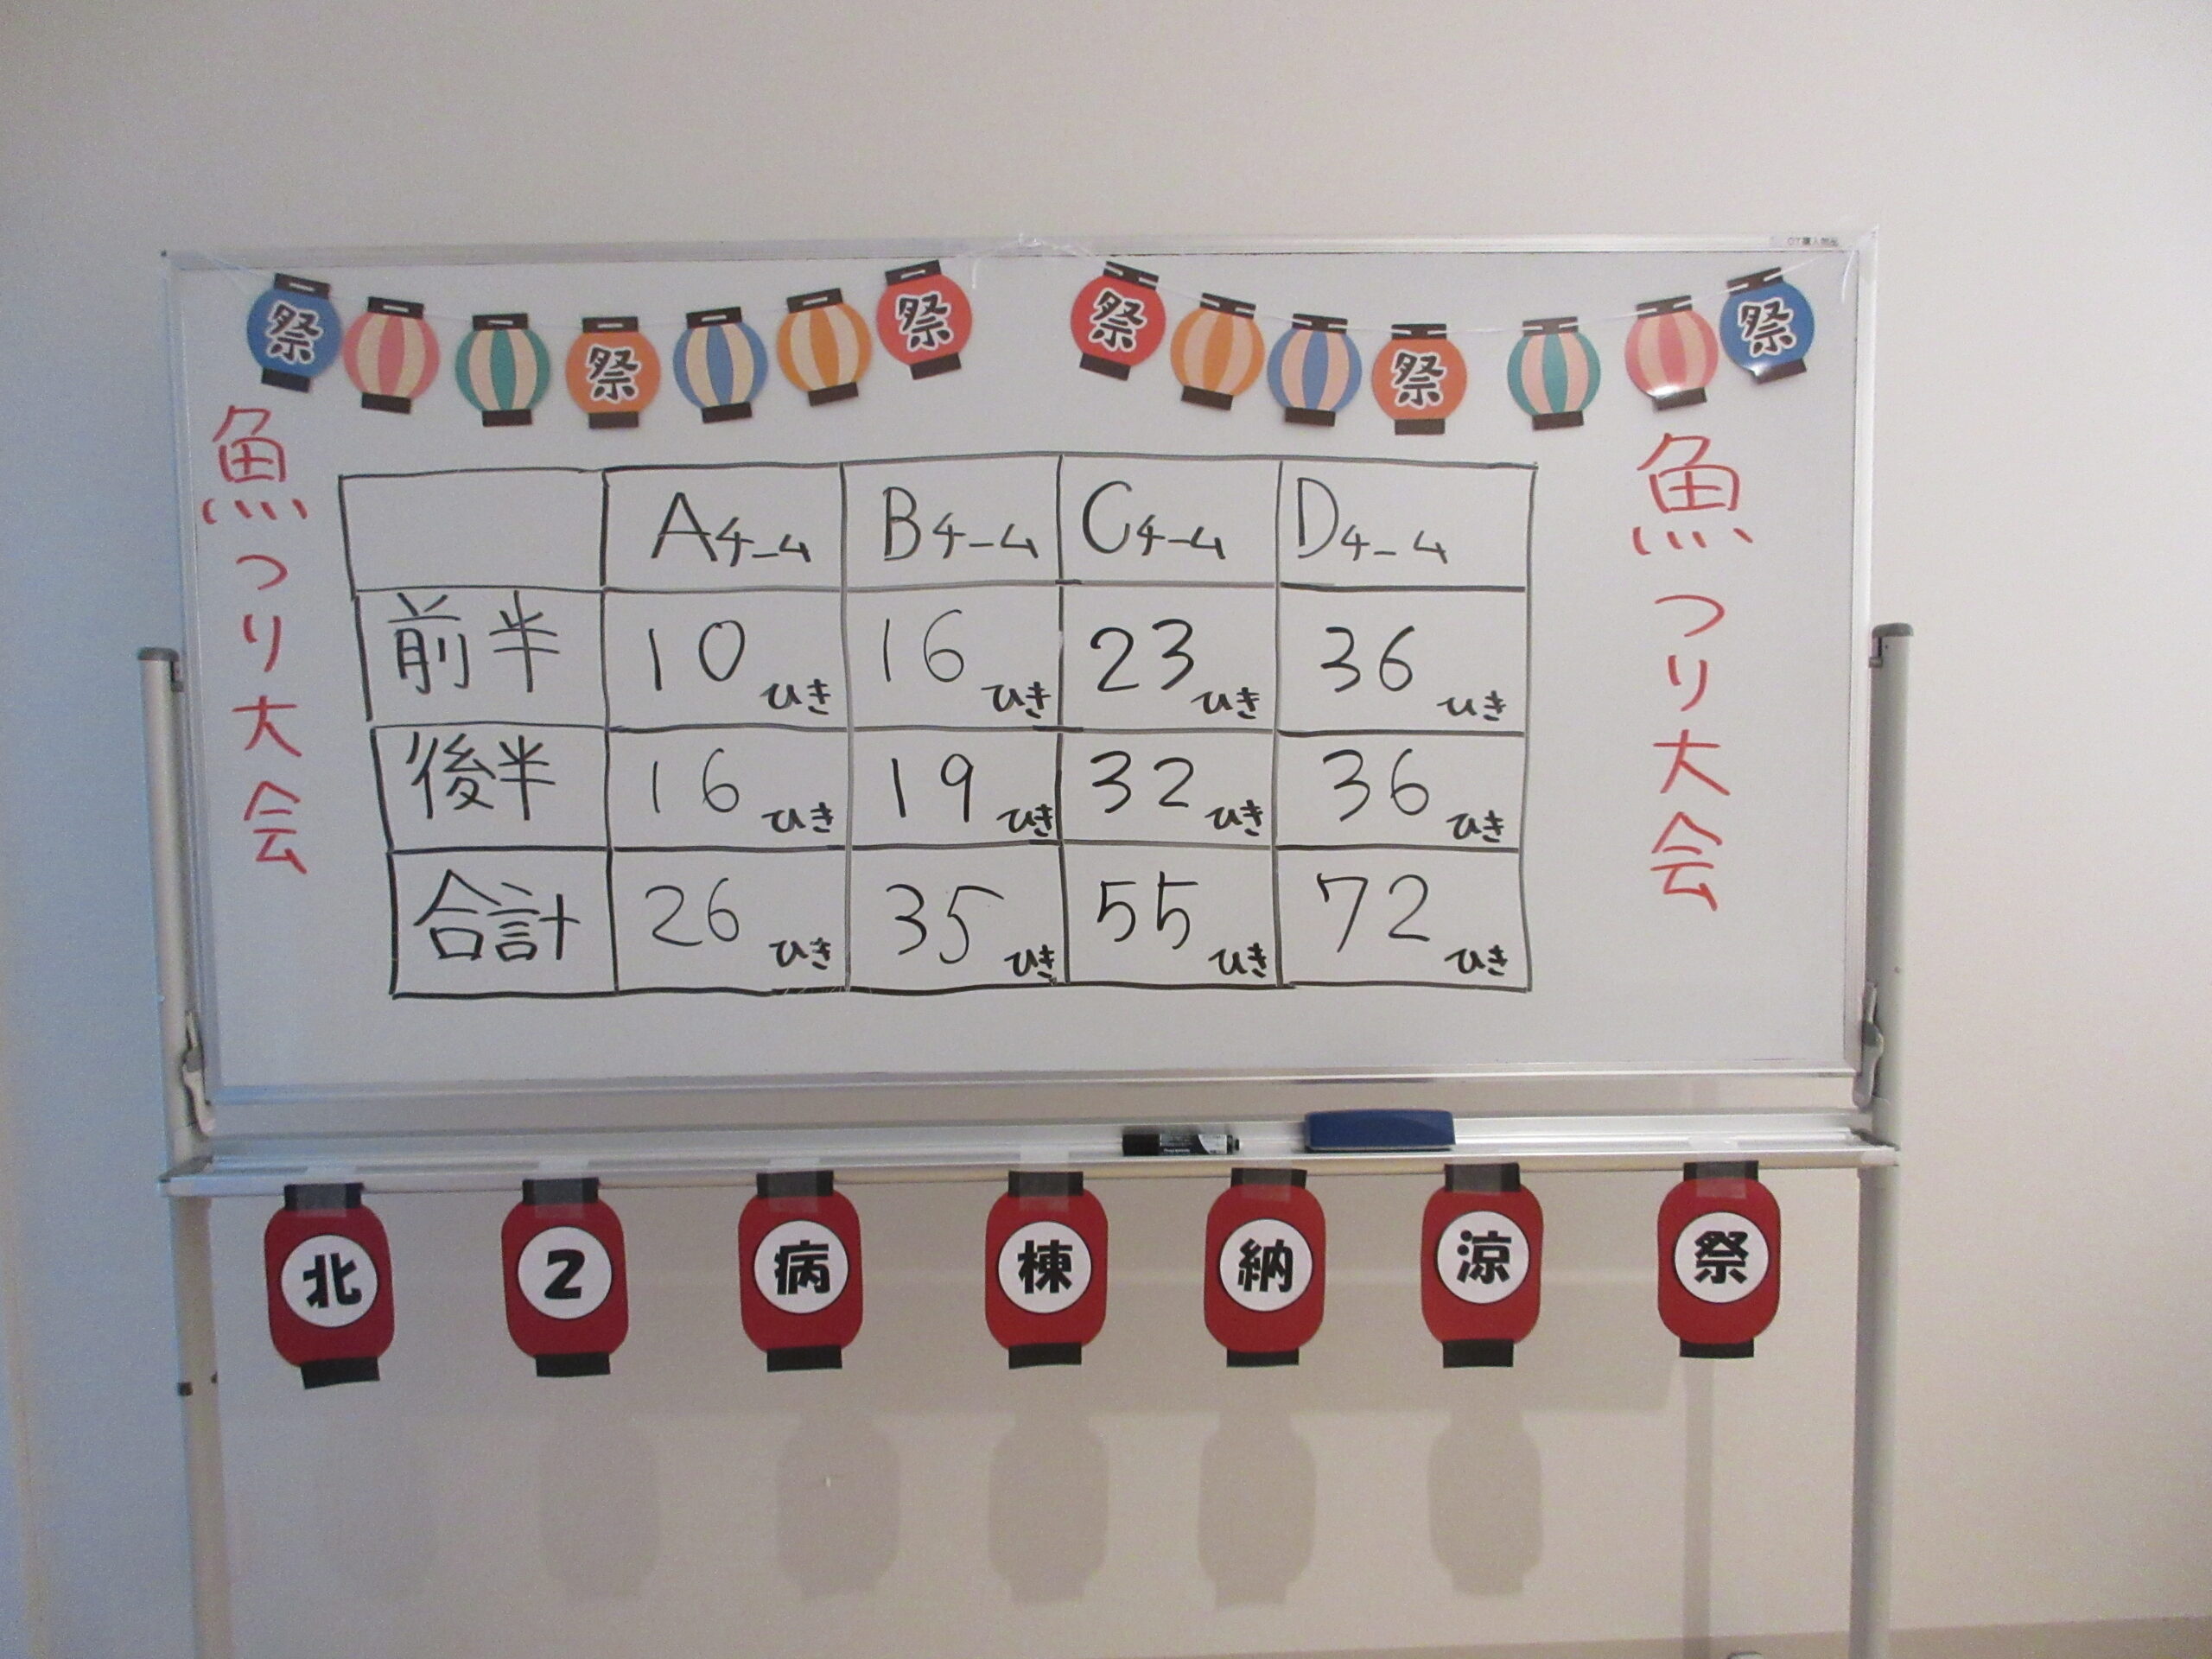 祭 祭 祭 祭 祭 祭
魚つり大会
Aチーム Bチーム Cチーム Dチーム
前半 10ひき 16ひき 23ひき 36ひき
後半 16ひき 19ひき 32ひき 36ひき
合計 26ひき 35ひき 55ひき 72ひき
魚つり大会
北2病棟納涼祭